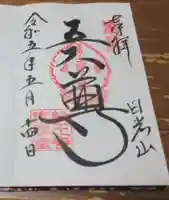 奉拝
日光山
五八尊
令和五年五月十四日